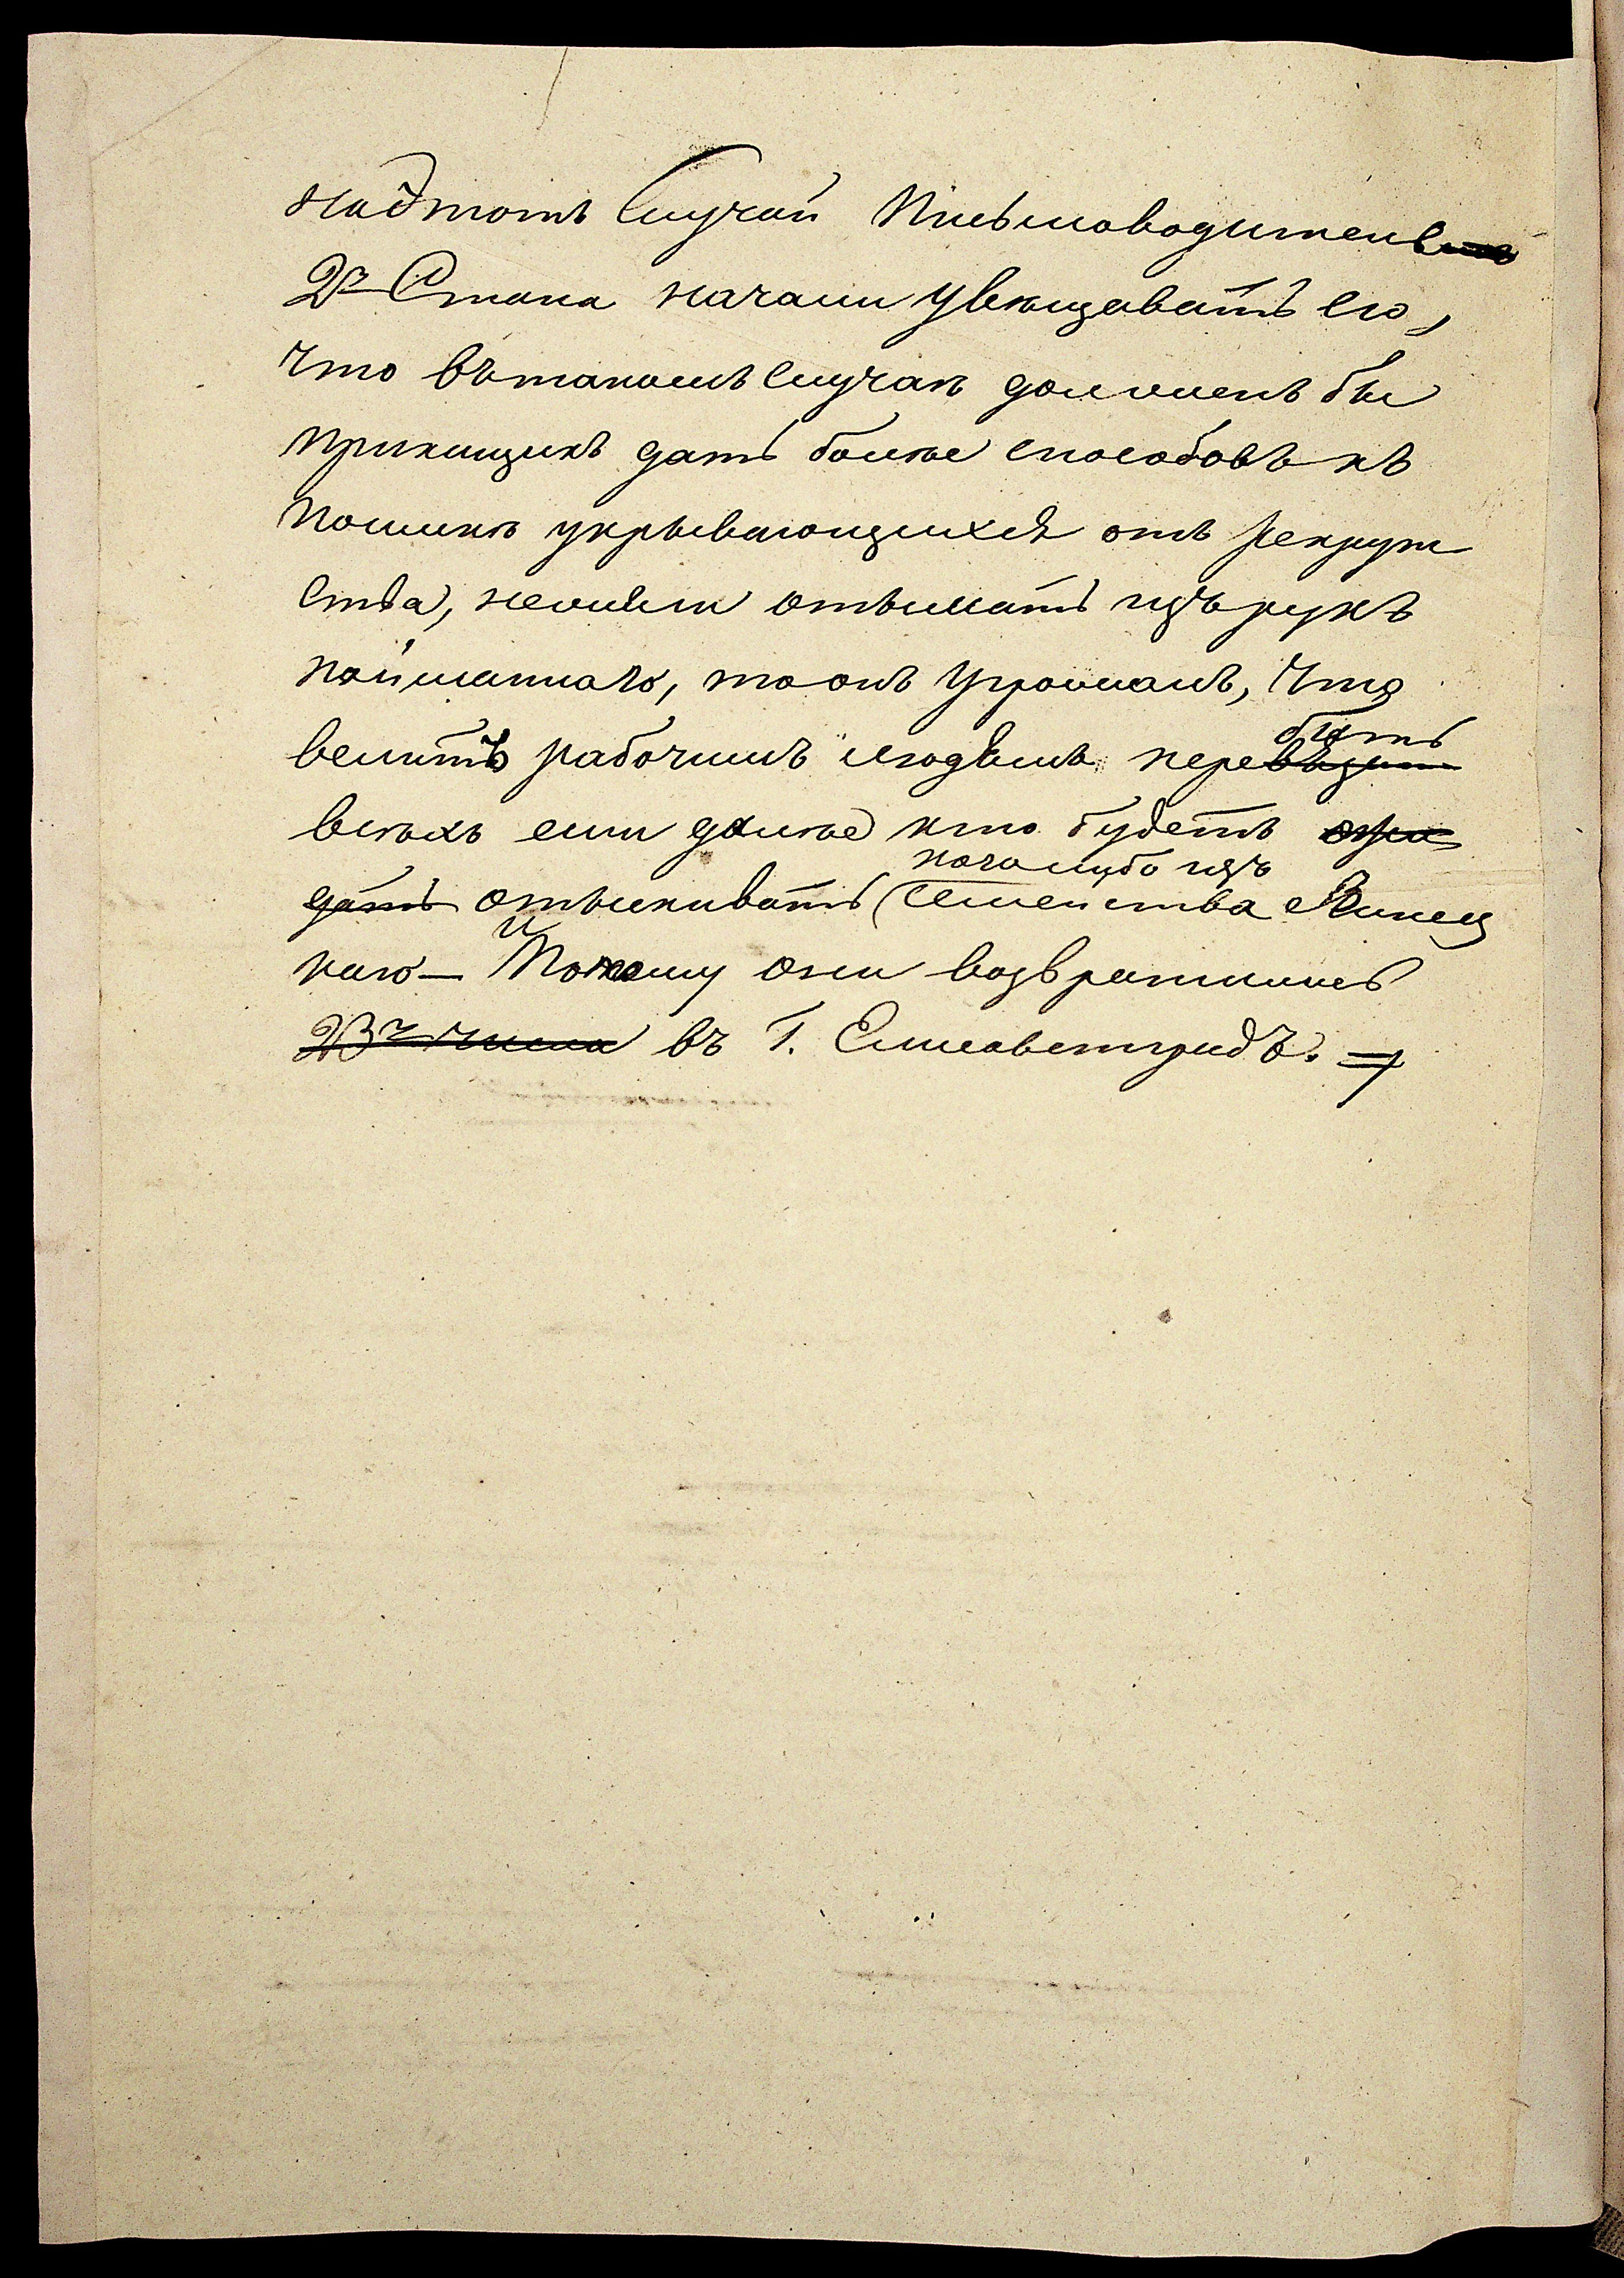 на этотъ Случай Письмоводитель
2го Стана начали увѣщавать его,
что въ такомъ Случаѣ долженъ бы
прикащикъ дать болѣе способовъ къ
поимкѣ укрывающихся отъ рекрут
ства, нежели отымать изъ рукъ
пойманнаго, то онъ угрожалъ, что
велитъ рабочимъ людямъ перебить
всѣхъ если далѣе кто будетъ ожи
дать отыскивать (кого либо изъ Семейства
каго – И Потому они возвратились
23го числа въ Г. Елисаветградъ.